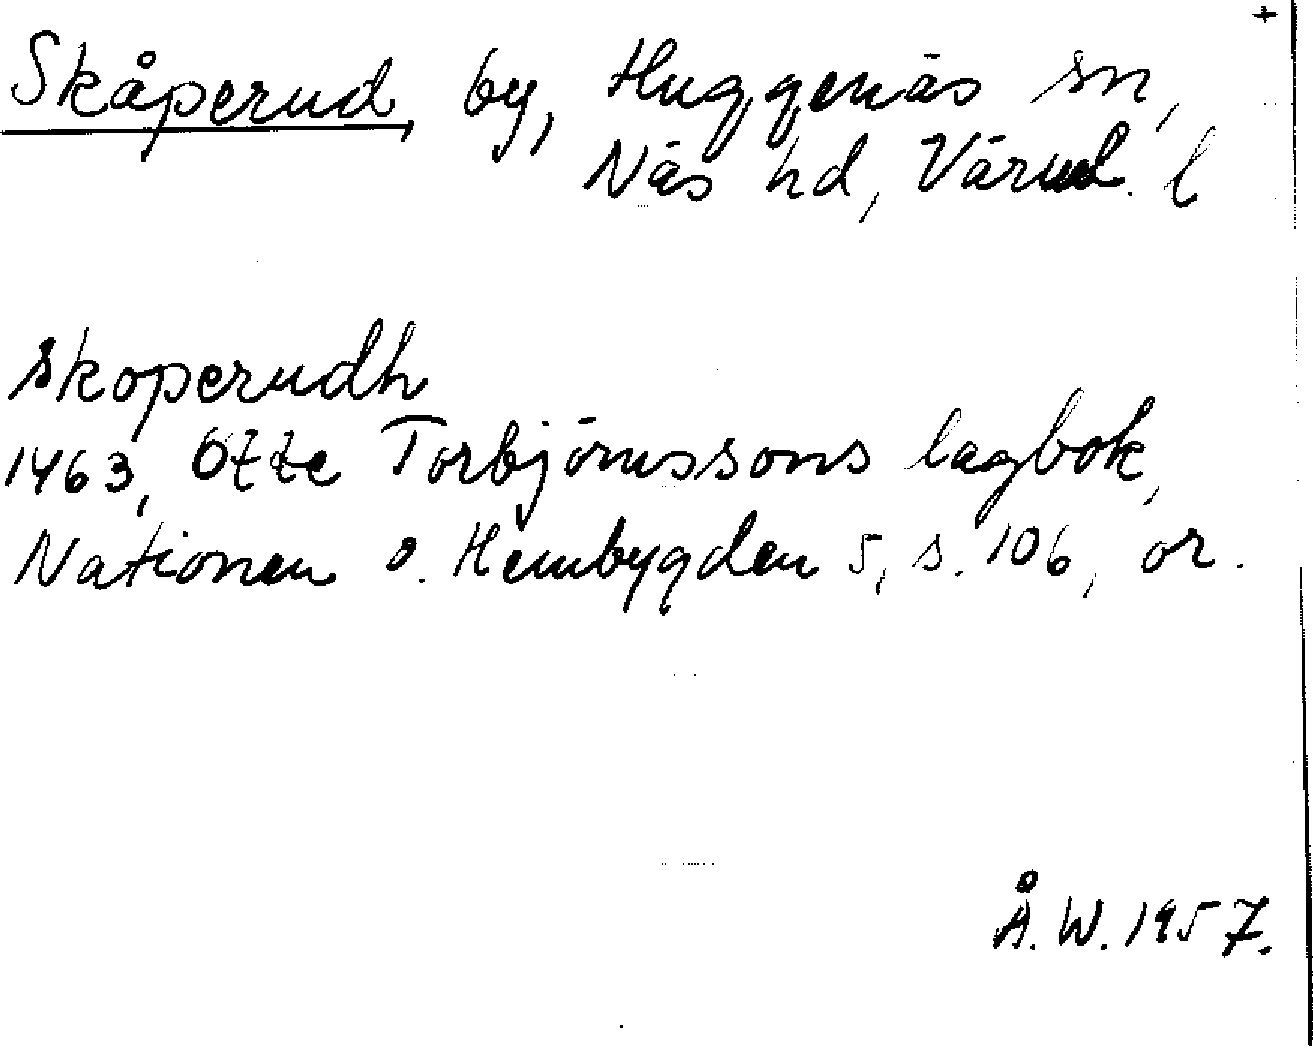 +
Skåperud, by, Huggenäs sn,
Näs hd, Värml. l
skoperudh
1463, Otte Torbjörnssons lagbok,
Nationen o. Hembygden 5, s. 106, or.
Å. W. 1957.